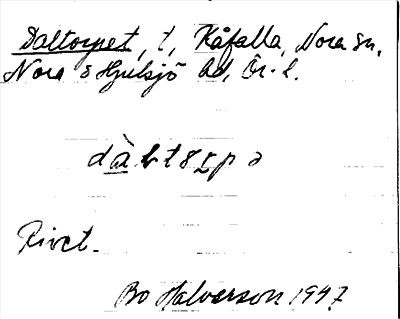 Daltorpet, t, Kåfalla, Nora sn,
Nora & Hjulsjö hd, Ör. l.
Rivet.
Bo Halvarson 1947.